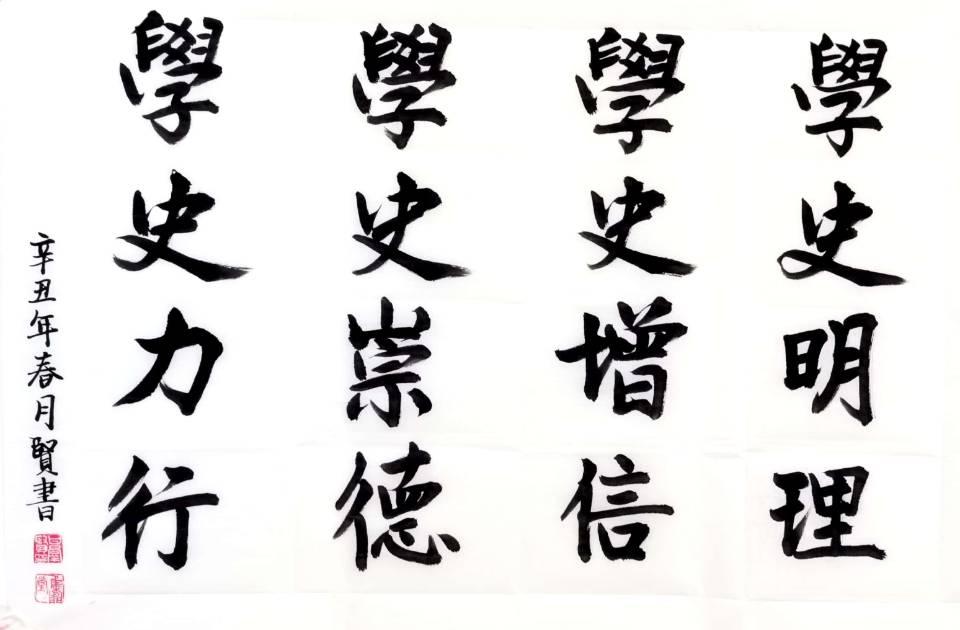 學史明理
學史增信
學史崇德
學史力行
辛丑年春月賢書